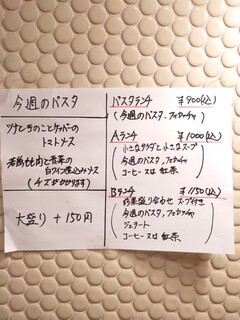 今週のパスタ
ツナときのことケッパーの
トマトソース
若鶏もも肉と香菜の
白ワイン煮込みソース
(チーズがかかります)
大盛り +150円
パスタランチ ¥900(込)
(今週のパスタ、フォカッチャ)
Aランチ ¥1000(込)
小さなサラダと小さなスープ
今週のパスタ,フォカッチャ
コーヒー又は紅茶
Bランチ ¥1150(込)
前菜盛り合わせ スープ付き
今週のパスタ,フォカッチャ
ジェラート
コーヒー又は紅茶